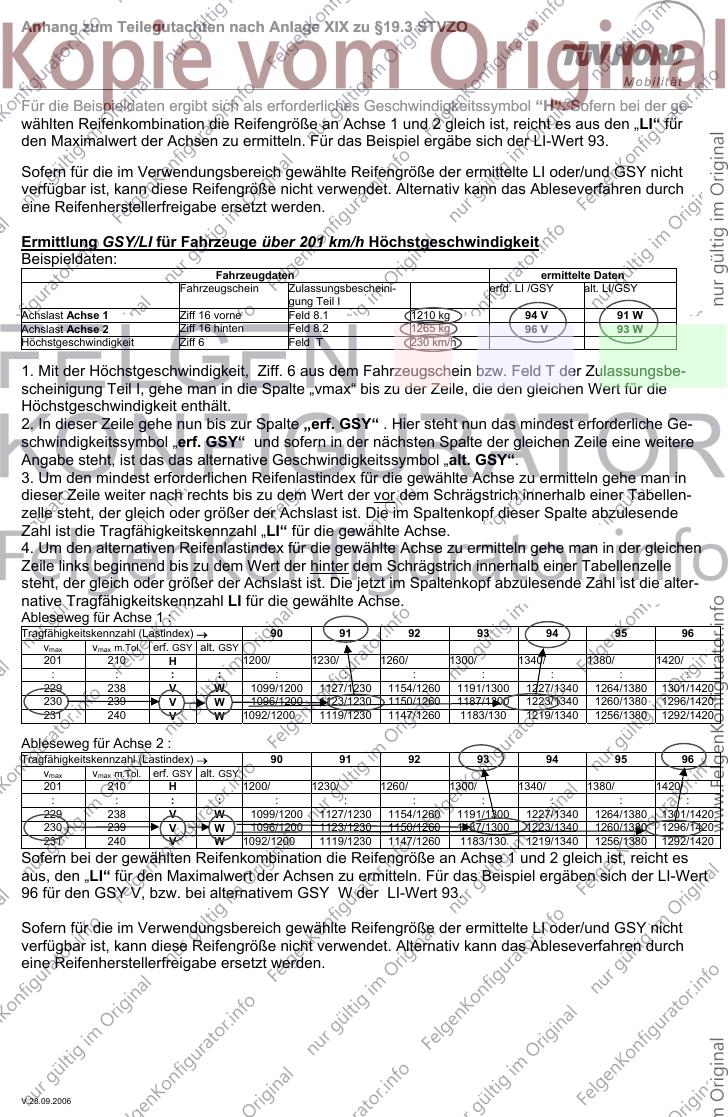 Anhang zum Teilegutachten nach Anlage XIX zu §19.3 STVZO
Kopie vom Original
TÜV NORD
Mobilität
Für die Beispieldaten ergibt sich als erforderliches Geschwindigkeitssymbol “H“. Sofern bei der ge-
wählten Reifenkombination die Reifengröße an Achse 1 und 2 gleich ist, reicht es aus den „LI“ für
den Maximalwert der Achsen zu ermitteln. Für das Beispiel ergäbe sich der LI-Wert 93.
Sofern für die im Verwendungsbereich gewählte Reifengröße der ermittelte LI oder/und GSY nicht
verfügbar ist, kann diese Reifengröße nicht verwendet. Alternativ kann das Ableseverfahren durch
eine Reifenherstellerfreigabe ersetzt werden.
Ermittlung GSY/LI für Fahrzeuge über 201 km/h Höchstgeschwindigkeit
Beispieldaten:
Fahrzeugdaten ermittelte Daten
Fahrzeugschein Zulassungsbescheini- erfd. LI /GSY alt. LI/GSY
gung Teil I
Achslast Achse 1 Ziff 16 vorne Feld 8.1 1210 kg 94 V 91 W
Achslast Achse 2 Ziff 16 hinten Feld 8.2 1265 kg 96 V 93 W
Höchstgeschwindigkeit Ziff 6 Feld T 230 km/h
FELGEN
KONFIGURATOR
FelgenKonfigurator.info
1. Mit der Höchstgeschwindigkeit, Ziff. 6 aus dem Fahrzeugschein bzw. Feld T der Zulassungsbe-
scheinigung Teil I, gehe man in die Spalte „vmax“ bis zu der Zeile, die den gleichen Wert für die
Höchstgeschwindigkeit enthält.
2. In dieser Zeile gehe nun bis zur Spalte „erf. GSY“ . Hier steht nun das mindest erforderliche Ge-
schwindigkeitssymbol „erf. GSY“ und sofern in der nächsten Spalte der gleichen Zeile eine weitere
Angabe steht, ist das das alternative Geschwindigkeitssymbol „alt. GSY“.
3. Um den mindest erforderlichen Reifenlastindex für die gewählte Achse zu ermitteln gehe man in
dieser Zeile weiter nach rechts bis zu dem Wert der vor dem Schrägstrich innerhalb einer Tabellen-
zelle steht, der gleich oder größer der Achslast ist. Die im Spaltenkopf dieser Spalte abzulesende
Zahl ist die Tragfähigkeitskennzahl „LI“ für die gewählte Achse.
4. Um den alternativen Reifenlastindex für die gewählte Achse zu ermitteln gehe man in der gleichen
Zeile links beginnend bis zu dem Wert der hinter dem Schrägstrich innerhalb einer Tabellenzelle
steht, der gleich oder größer der Achslast ist. Die jetzt im Spaltenkopf abzulesende Zahl ist die alter-
native Tragfähigkeitskennzahl LI für die gewählte Achse.
Ableseweg für Achse 1 :
Tragfähigkeitskennzahl (Lastindex) → 90 91 92 93 94 95 96
vmax vmax m.Tol. erf. GSY alt. GSY
201 210 H 1200/ 1230/ 1260/ 1300/ 1340/ 1380/ 1420/
: : : : : : : : : : :
229 238 V W 1099/1200 1127/1230 1154/1260 1191/1300 1227/1340 1264/1380 1301/1420
230 239 V W 1096/1200 1123/1230 1150/1260 1187/1300 1223/1340 1260/1380 1296/1420
231 240 V W 1092/1200 1119/1230 1147/1260 1183/130 1219/1340 1256/1380 1292/1420
Ableseweg für Achse 2 :
Tragfähigkeitskennzahl (Lastindex) → 90 91 92 93 94 95 96
vmax vmax m.Tol. erf. GSY alt. GSY
201 210 H 1200/ 1230/ 1260/ 1300/ 1340/ 1380/ 1420/
: : : : : : : : : : :
229 238 V W 1099/1200 1127/1230 1154/1260 1191/1300 1227/1340 1264/1380 1301/1420
230 239 V W 1096/1200 1123/1230 1150/1260 1187/1300 1223/1340 1260/1380 1296/1420
231 240 V W 1092/1200 1119/1230 1147/1260 1183/130 1219/1340 1256/1380 1292/1420
Sofern bei der gewählten Reifenkombination die Reifengröße an Achse 1 und 2 gleich ist, reicht es
aus, den „LI“ für den Maximalwert der Achsen zu ermitteln. Für das Beispiel ergäben sich der LI-Wert
96 für den GSY V, bzw. bei alternativem GSY W der LI-Wert 93.
Sofern für die im Verwendungsbereich gewählte Reifengröße der ermittelte LI oder/und GSY nicht
verfügbar ist, kann diese Reifengröße nicht verwendet. Alternativ kann das Ableseverfahren durch
eine Reifenherstellerfreigabe ersetzt werden.
V.28.09.2006
nur gültig im Original
www.FelgenKonfigurator.info
nur gültig im Original
FelgenKonfigurator.info